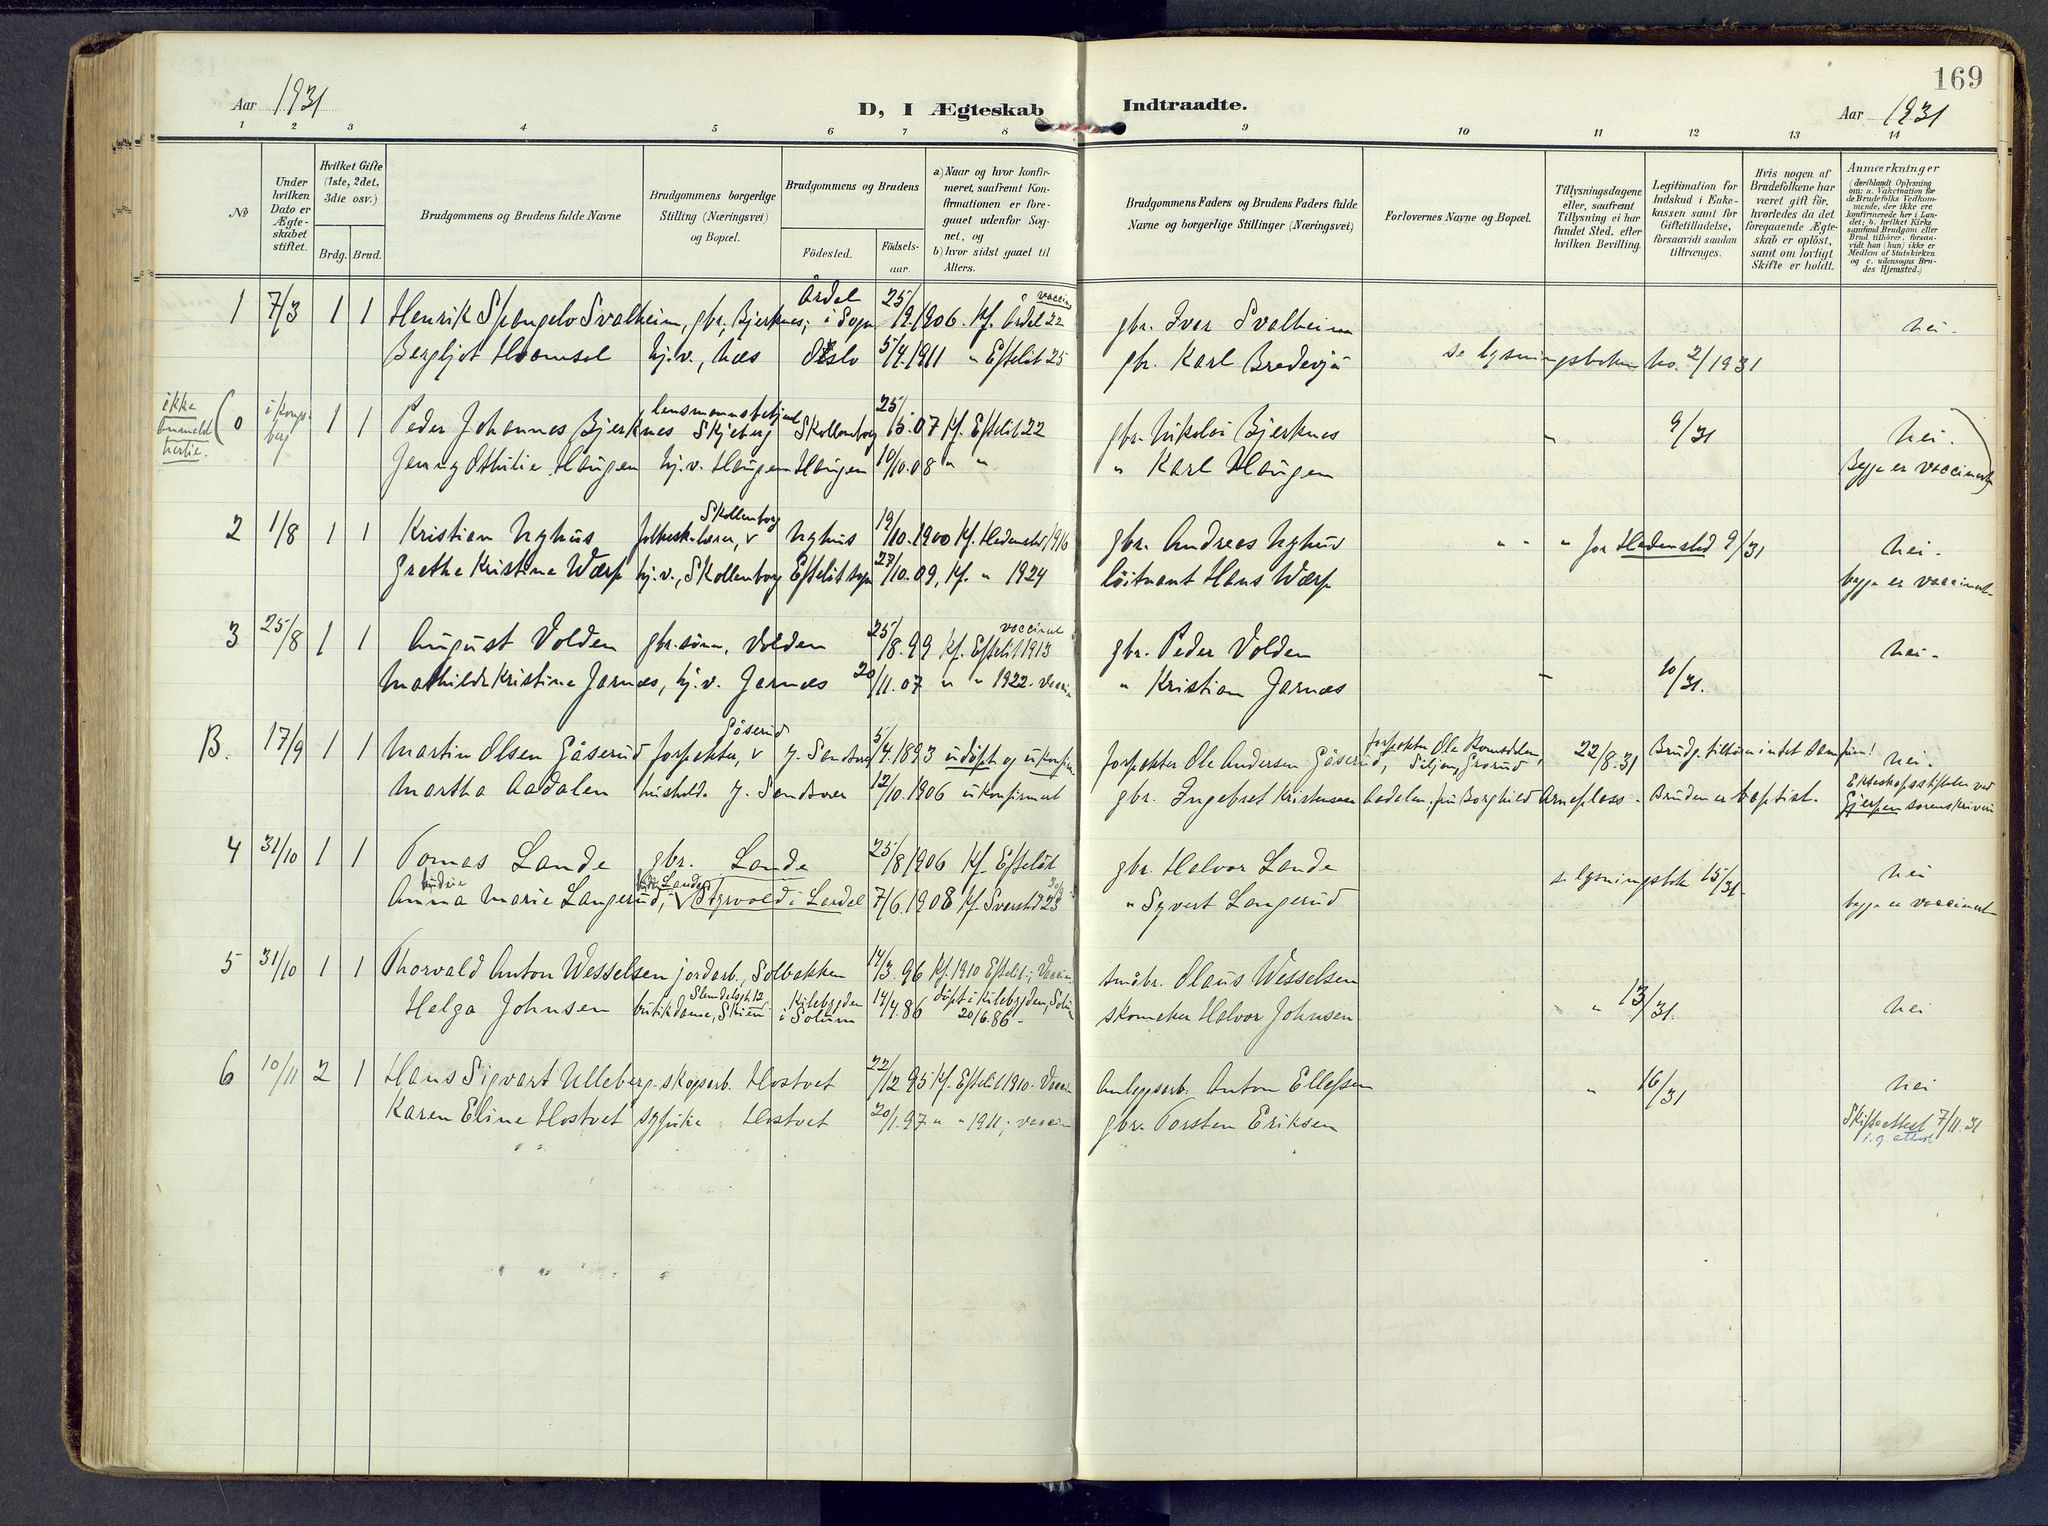 169
Aar 1931
D, I Ægteskab Indtraadte.
Aar 1931
1 2 3 4 5 6 7 8 9 10 11 12 13 14
No
Under hvilken Dato er Ægteskabet stiftet.
Hvilket Gifte (1ste, 2det, 3die osv.)
Brdg. Brud.
Brudgommens og Brudens fulde Navne
Brudgommens borgerlige Stilling (Næringsvei) og Bopæl.
Brudgommens og Brudens
Födested. Födselsaar.
a) Naar og hvor konfirmeret, saafremt Konfirmationen er foregaaet udenfor Sognet, og
b) hvor sidst gaaet til Alters.
Brudgommens Faders og Brudens Faders fulde Navne og borgerlige Stillinger (Næringsvei)
Forlovernes Navne og Bopæl.
Tillysningsdagene eller, saafremt Tillysning ei har fundet Sted, efter hvilken Bevilling.
Legitimation for Indskud i Enkekassen samt for Giftetilladelse, forsaavidt saadan tiltrænges.
Hvis nogen af Brudefolkene har været gift før, hvorledes da det foregaaende Ægteskab er oplöst, samt om lovligt Skifte er holdt.
Anmærkninger
(deriblandt Oplysning om: a. Vakcination for Brudefolks Vedkommende, der ikke ere konfirmerede her i Landet; b. hvilket Kirkesamfund Brudgom eller Brud tilhörer, forsaavidt han (hun) ikke er Medlem af Statskirken og c. udensogns Brudes Hjemsted.)
1 7/3 1 1 Henrik Spangelo Svalheim, gbr. Bjerknes; Årdal i Sogn 25/9.1906. Kf. Årdal 22 vaccin. gbr. Ivar Svalheim nei.
Bergljot Hvamsal hj.v., Næs Oslo 5/4.1911 " Efteløt 25 gbr. Karl Bredesjø se lysningsboken No. 2/1931
ikke anmeldt hertil. (0 i Kongsberg 1 1 Peder Johannes Bjerknes lensmannsbetjent Skjeberg Skollenborg 25/5.07 Kf. Efteløt 22 gbr. Nikolai Bjerknes " 9/31 nei.
Jenny Othilie Haugen hj.v. Haugen Haugen 10/10.08 " " " Karl Haugen Begge er vaccinert)
2 1/8 1 1 Kristian Nyhus folkesk.lærer, v Skollenborg Nyhus 19/10.1900 Kf. Hedenstad 1916 gbr. Andreas Nyhus " " " for Hedenstad 9/31 nei.
Grethe Kristine Wærp hj.v., Skollenborg Efteløt sogn 27/10.09, Kf. " 1924 løitnant Hans Wærp begge er vaccinert
3 25/8 1 1 August Volden gbr.sønn, Volden 25/8.99 Kf. Efteløt 1913 vaccinert gbr. Peder Volden nei.
Mathilde Kristine Jarnæs, hj.v. Jarnæs 20/11.07 " " 1922. Vaccin " Kristian Jarnæs " 10/31.
B. 17/9 1 1 Martin Olsen Gåserud forpakter, v Gåserud Y. Sandsvær 5/4.1893 udøpt og ukonfirm. forpakter Ole Andersen Gåserud, forpakter Ole Romsdalen, Siljan, Grorud 22/8.31 Brudg. tilhører intet samfun! nei.
Martha Aadalen husholdn. Y. Sandsvær 12/10.1906 ukonfirmert gbr. Ingebret Kristensen Aadalen, fru Borghild Arneplass. Bruden er baptist. Ekteskapsstiftelse ved Gjerpen sorenskriveri
4 31/10 1 1 Tomas Lande gbr. Lande 25/8 1906 Kf. Efteløt gbr. Halvor Lande se lysningsbok 15/31. nei
Anna Marie Langerud, Styrvold i Lardal 7/6.1908 Kf. Svarstad 23 " Syvert Langerud begge er vaccinert
5 31/10 1 1 Thorvald Anton Wesselsen jordarb. Solbakken 14/3.96 Kf. 1910 Efteløt; Vaccin. småbr. Olaus Wesselsen
Helga Johnsen butikdame, Skien Kilebygden i Solum 14/4.86 døpt i Kilebygden, Solum 20/6.86 - skomaker Halvor Johnsen " 13/31. nei
6 10/11 2 1 Hans Sigvart Ulleberg skogsarb. Hostvet 22/12 95 Kf. Efteløt 1910. Vaccin Anleggsarb. Anton Ellefsen " 16/31 nei
Karen Eline Hostvet syerske Hostvet 20/1.97 " " 1911; vaccin gbr. Torsten Eriksen Skifteattest 7/11.31